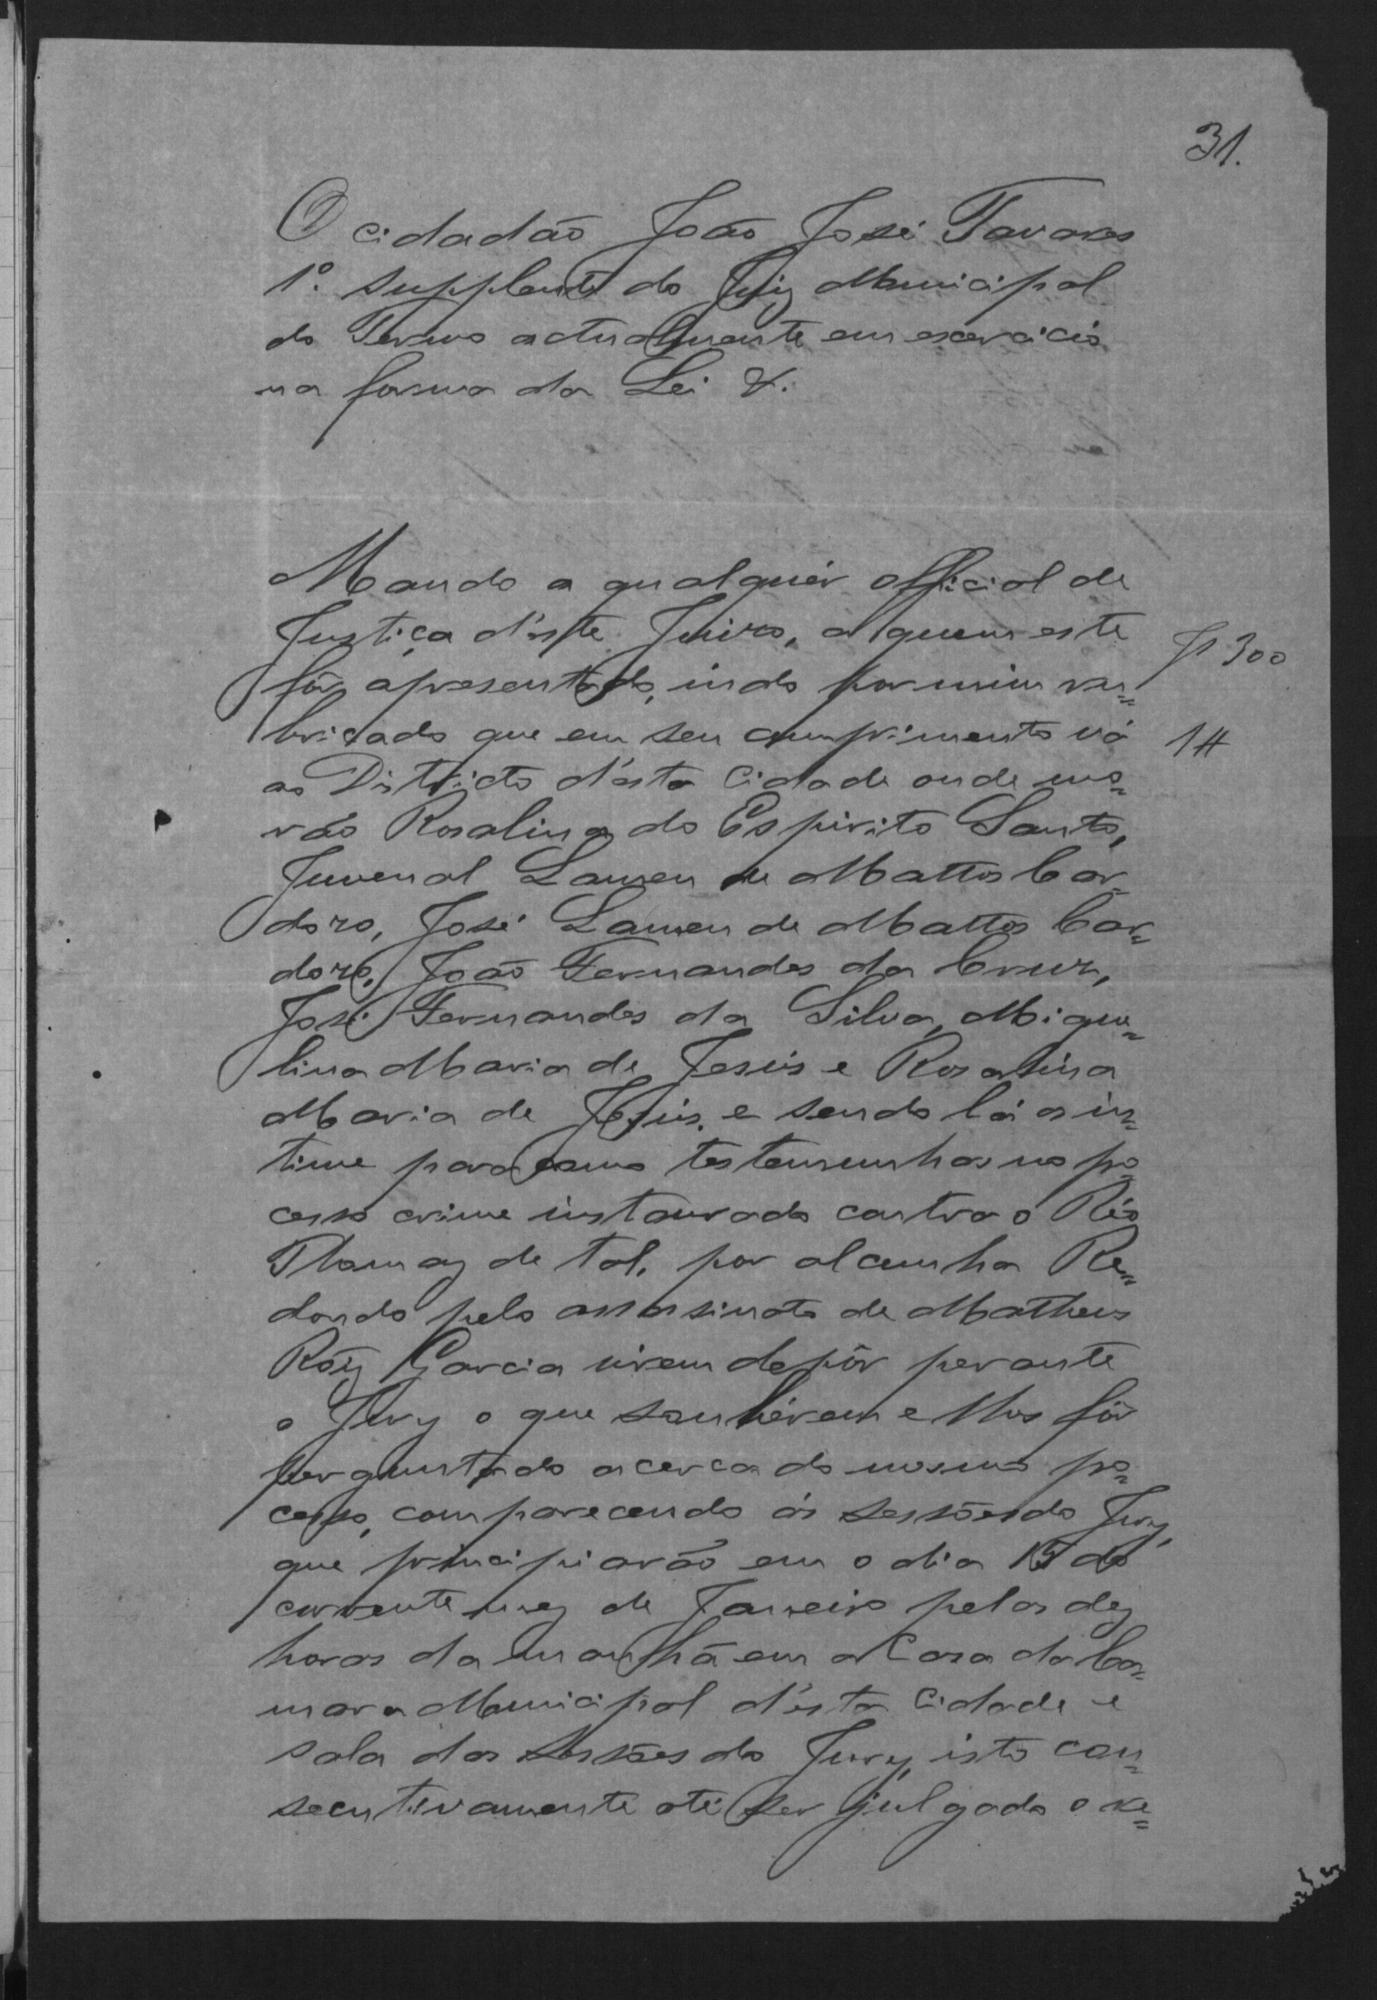 31.
O cidadão João José Tavares
1º. supplente do Juiz Municipal
do Termo actualmente em exercicio
na forma da Lei &.
Mando a qualquér official de
Justiça d'este Juizo, a quem este
fôr apresentado, indo por mim ru=
bricado que em seu cumprimento vá
ao Districto d'esta Cidade onde mo=
rão Rosalina do Espirito Santo,
Juvenal de Mattos Car=
dozo, José de Mattos Car=
dozo, João Fernandes da Cruz,
José Fernandes da Silva, Migue=
lina Maria de Jesús e Rosalina
Maria de Jesús, e sendo lá os in=
time para como testemunhas no pro=
cesso crime instaurado contra o Réo
Thomaz de tal, por alcunha Re=
dondo pelo assassinato de Matheus
Roiz Garcia virem depôr perante
o Jury o que souberem e lhes fôr
perguntado acerca do mesmo pro=
cesso, comparecendo ás sessões do Jury,
que principiarão em o dia 15 do
corrente mez de Janeiro pelas dez
horas da manhã em a Casa da Ca=
mara Municipal d'esta Cidade e
sala das sessões do Jury, isto con=
secutivamente até ser julgado o re=
Js 300
1#